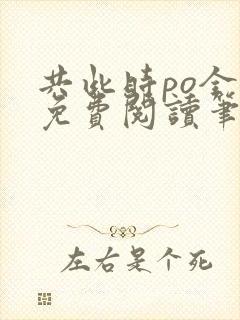 共此时po全
免费阅读笔
左右是个死